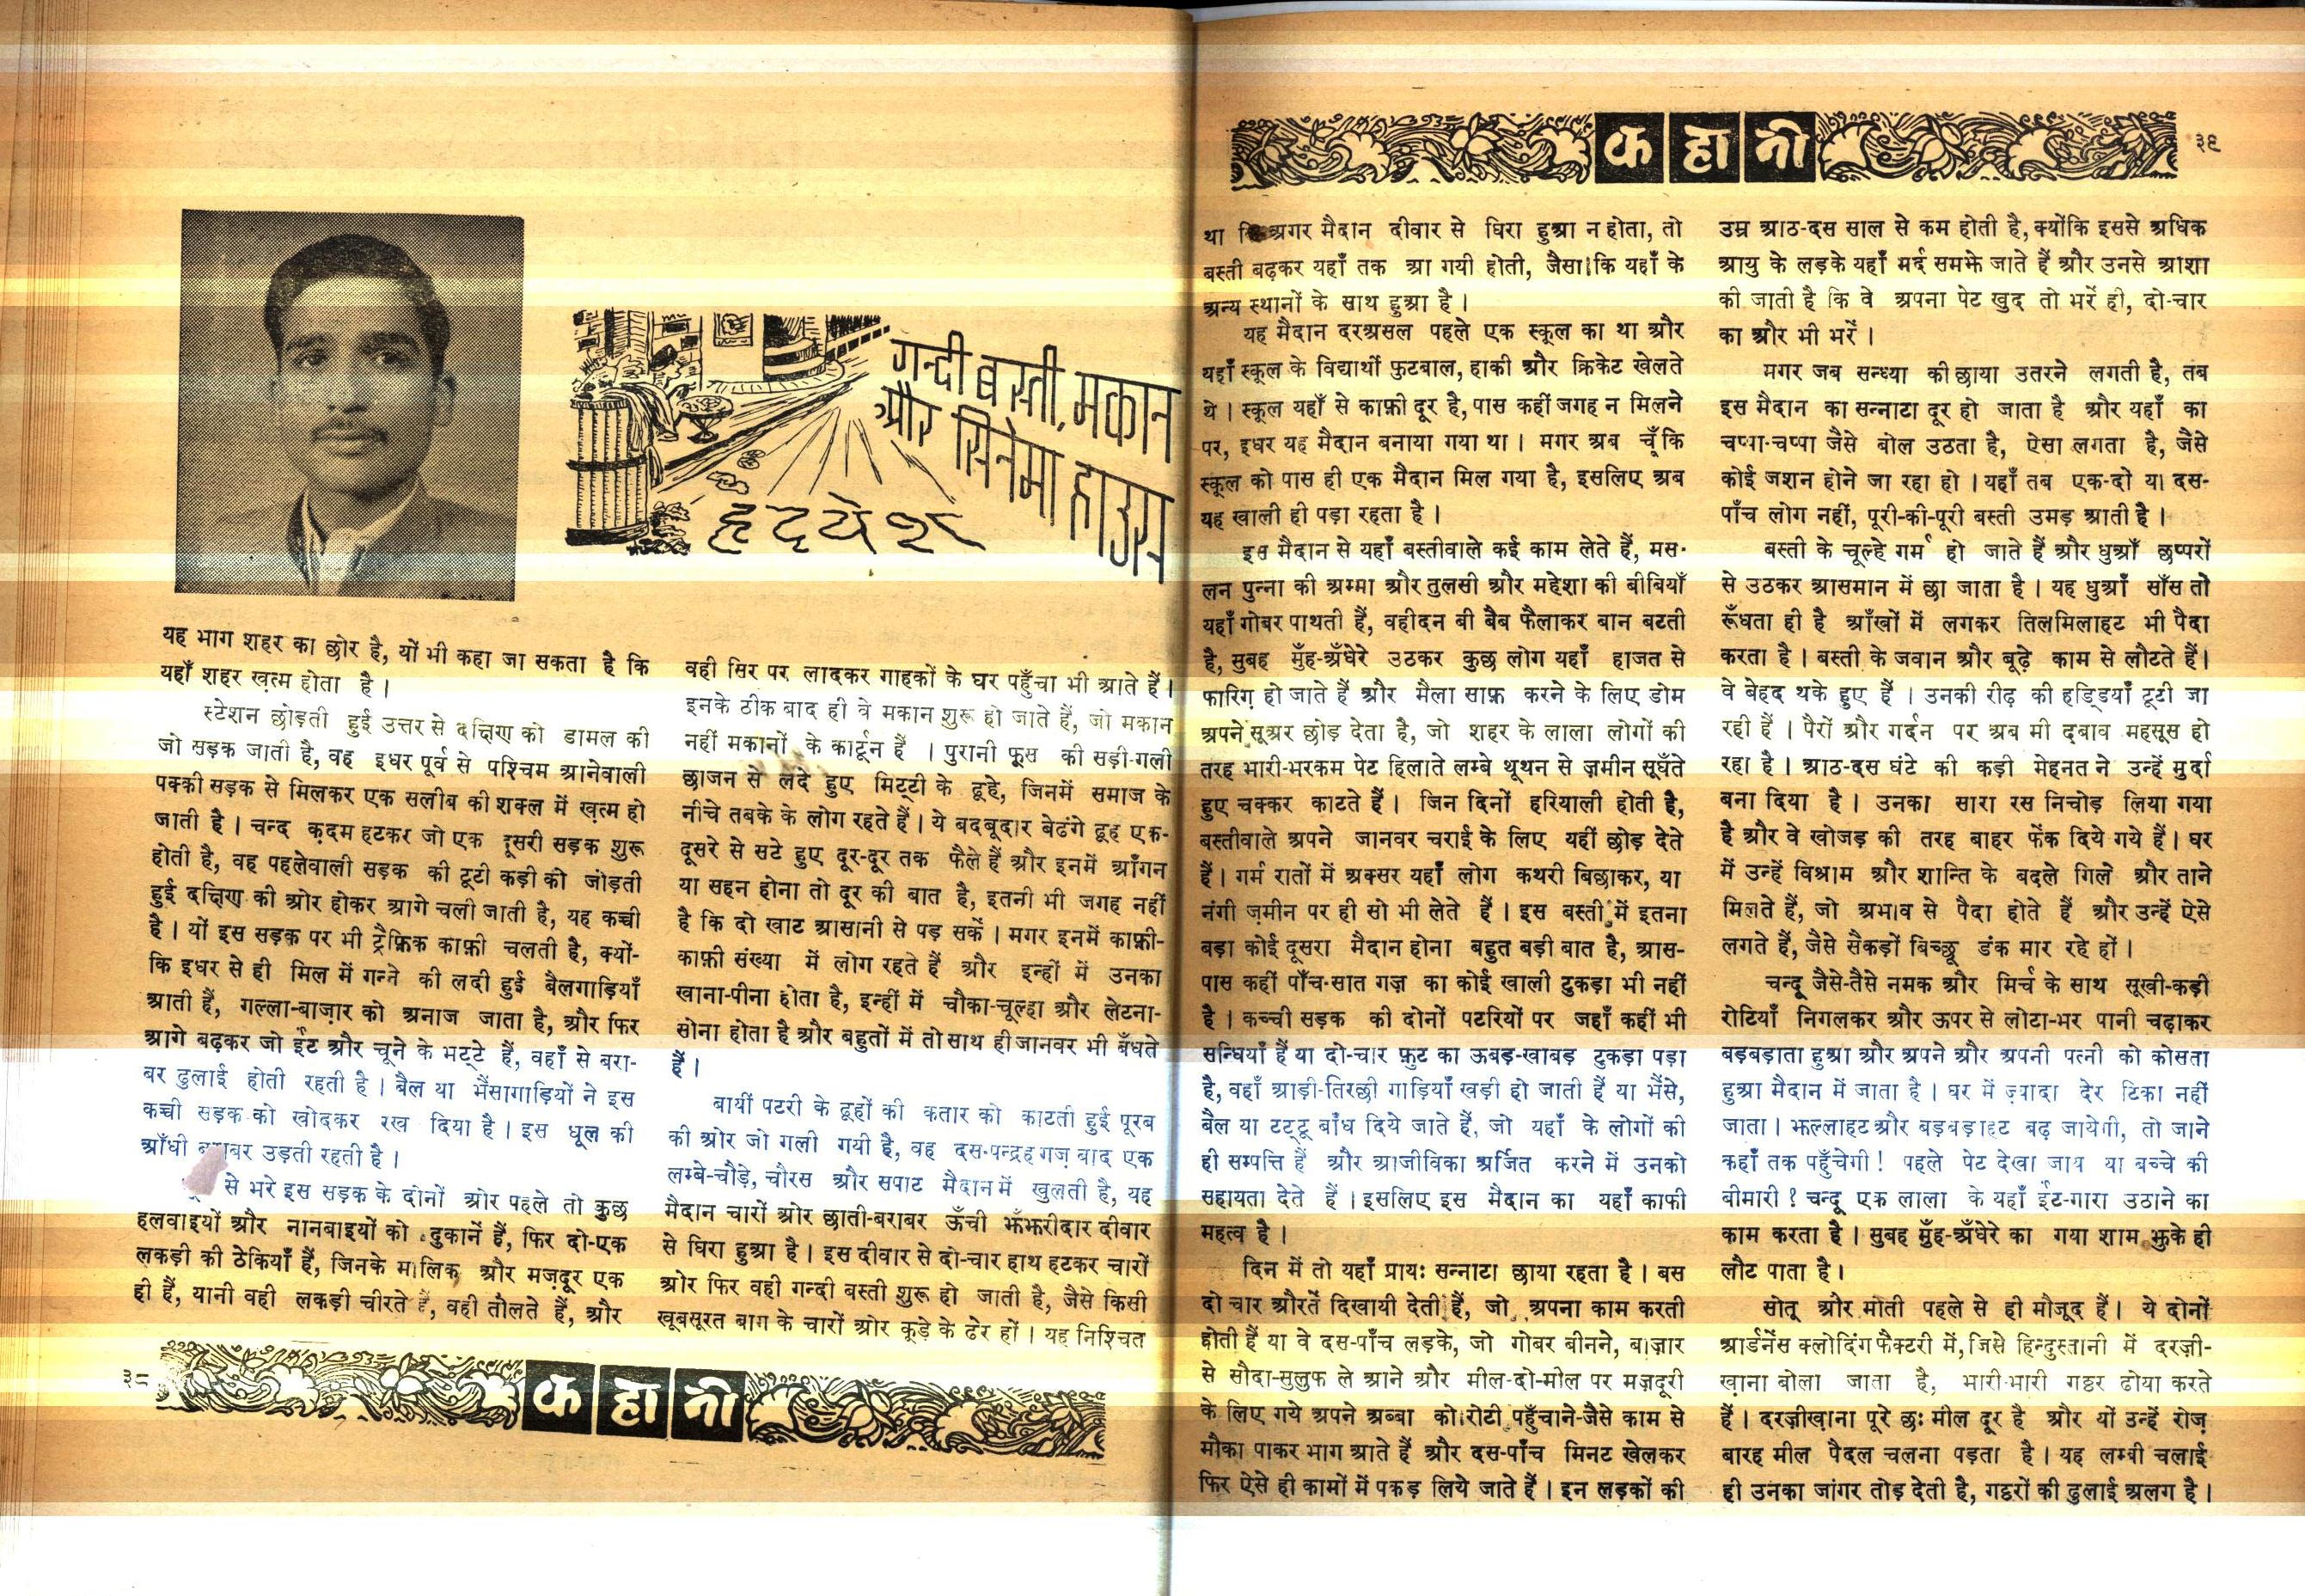 गन्दी बस्ती, मकान
और सिनेमा हाउस
हृदयेश
यह भाग शहर का छोर है, यों भी कहा जा सकता है कि
यहाँ शहर ख़त्म होता है।
स्टेशन छोड़ती हुई उत्तर से दक्षिण को डामल की
जो सड़क जाती है, वह इधर पूर्व से पश्चिम आनेवाली
पक्की सड़क से मिलकर एक सलीब की शक्ल में ख़त्म हो
जाती है। चन्द क़दम हटकर जो एक दूसरी सड़क शुरू
होती है, वह पहलेवाली सड़क की टूटी कड़ी को जोड़ती
हुई दक्षिण की ओर होकर आगे चली जाती है, यह कच्ची
है। यों इस सड़क पर भी ट्रैफ़िक काफ़ी चलती है, क्यों-
कि इधर से ही मिल में गन्ने की लदी हुई बैलगाड़ियाँ
आती हैं, गल्ला-बाज़ार को अनाज जाता है, और फिर
आगे बढ़कर जो ईंट और चूने के भट्टे हैं, वहाँ से बरा-
बर ढुलाई होती रहती है। बैल या भैंसागाड़ियों ने इस
कच्ची सड़क को खोदकर रख दिया है। इस धूल की
आँधी बराबर उड़ती रहती है।
से भरे इस सड़क के दोनों ओर पहले तो कुछ
हलवाइयों और नानबाइयों को दुकानें हैं, फिर दो-एक
लकड़ी की ठेकियाँ हैं, जिनके मालिक और मज़दूर एक
ही हैं, यानी वही लकड़ी चीरते हैं, वही तोलते हैं, और
वही सिर पर लादकर गाहकों के घर पहुँचा भी आते हैं।
इनके ठीक बाद ही वे मकान शुरू हो जाते हैं, जो मकान
नहीं मकानों के कार्टून हैं । पुरानी फूस की सड़ी-गली
छाजन से लदे हुए मिट्टी के ढूहे, जिनमें समाज के
नीचे तबके के लोग रहते हैं। ये बदबूदार बेढंगे ढूह एक-
दूसरे से सटे हुए दूर-दूर तक फैले हैं और इनमें आँगन
या सहन होना तो दूर की बात है, इतनी भी जगह नहीं
है कि दो खाट आसानी से पड़ सकें। मगर इनमें काफ़ी-
काफ़ी संख्या में लोग रहते हैं और इन्हों में उनका
खाना-पीना होता है, इन्हीं में चौका-चूल्हा और लेटना-
सोना होता है और बहुतों में तो साथ ही जानवर भी बँधते
हैं।
बायीं पटरी के ढूहों की कतार को काटती हुई पूरब
की ओर जो गली गयी है, वह दस-पन्द्रह गज़ बाद एक
लम्बे-चौड़े, चौरस और सपाट मैदान में खुलती है, यह
मैदान चारों ओर छाती-बराबर ऊँची झँझरीदार दीवार
से घिरा हुआ है। इस दीवार से दो-चार हाथ हटकर चारों
ओर फिर वही गन्दी बस्ती शुरू हो जाती है, जैसे किसी
खूबसूरत बाग के चारों ओर कूड़े के ढेर हों। यह निश्चित
३८
कहानी
कहानी
३९
था कि अगर मैदान दीवार से घिरा हुआ न होता, तो
बस्ती बढ़कर यहाँ तक आ गयी होती, जैसा कि यहाँ के
अन्य स्थानों के साथ हुआ है।
यह मैदान दरअसल पहले एक स्कूल का था और
यहाँ स्कूल के विद्यार्थी फ़ुटबाल, हाकी और क्रिकेट खेलते
थे। स्कूल यहाँ से काफ़ी दूर है, पास कहीं जगह न मिलने
पर, इधर यह मैदान बनाया गया था। मगर अब चूँकि
स्कूल को पास ही एक मैदान मिल गया है, इसलिए अब
यह खाली ही पड़ा रहता है।
इस मैदान से यहाँ बस्तीवाले कई काम लेते हैं, मस-
लन पुन्ना की अम्मा और तुलसी और महेशा की बीबियाँ
यहाँ गोबर पाथती हैं, वहीदन बी बैब फैलाकर बान बटती
है, सुबह मुँह-अँधेरे उठकर कुछ लोग यहाँ हाजत से
फारिग़ हो जाते हैं और मैला साफ़ करने के लिए डोम
अपने सूअर छोड़ देता है, जो शहर के लाला लोगों की
तरह भारी-भरकम पेट हिलाते लम्बे थूथन से ज़मीन सूघँते
हुए चक्कर काटते हैं। जिन दिनों हरियाली होती है,
बस्तीवाले अपने जानवर चराई के लिए यहीं छोड़ देते
हैं। गर्म रातों में अक्सर यहाँ लोग कथरी बिछाकर, या
नंगी ज़मीन पर ही सो भी लेते हैं। इस बस्ती में इतना
बड़ा कोई दूसरा मैदान होना बहुत बड़ी बात है, आस-
पास कहीं पाँच-सात गज़ का कोई खाली टुकड़ा भी नहीं
है। कच्ची सड़क की दोनों पटरियों पर जहाँ कहीं भी
सन्धियाँ हैं या दो-चार फ़ुट का ऊबड़-खाबड़ टुकड़ा पड़ा
है, वहाँ आड़ी-तिरछी गाड़ियाँ खड़ी हो जाती हैं या भैंसे,
बैल या टट्टू बाँध दिये जाते हैं, जो यहाँ के लोगों की
ही सम्पत्ति हैं और आजीविका अर्जित करने में उनको
सहायता देते हैं। इसलिए इस मैदान का यहाँ काफी
महत्व है।
दिन में तो यहाँ प्रायः सन्नाटा छाया रहता है। बस
दो चार औरतें दिखायी देती हैं, जो अपना काम करती
होती हैं या वे दस-पाँच लड़के, जो गोबर बीनने, बाज़ार
से सौदा-सुलुफ ले आने और मील-दो-मील पर मज़दूरी
के लिए गये अपने अब्बा को रोटी पहुँचाने-जैसे काम से
मौका पाकर भाग आते हैं और दस-पाँच मिनट खेलकर
फिर ऐसे ही कामों में पकड़ लिये जाते हैं। इन लड़कों की
उम्र आठ-दस साल से कम होती है, क्योंकि इससे अधिक
आयु के लड़के यहाँ मर्द समझे जाते हैं और उनसे आशा
की जाती है कि वे अपना पेट खुद तो भरें ही, दो-चार
का और भी भरें।
मगर जब सन्ध्या की छाया उतरने लगती है, तब
इस मैदान का सन्नाटा दूर हो जाता है और यहाँ का
चप्पा-चप्पा जैसे बोल उठता है, ऐसा लगता है, जैसे
कोई जशन होने जा रहा हो। यहाँ तब एक-दो या दस-
पाँच लोग नहीं, पूरी-की-पूरी बस्ती उमड़ आती है।
बस्ती के चूल्हे गर्म हो जाते हैं और धुआँ छप्परों
से उठकर आसमान में छा जाता है। यह धुआँ साँस तो
रूँधता ही है आँखों में लगकर तिलमिलाहट भी पैदा
करता है। बस्ती के जवान और बूढ़े काम से लौटते हैं।
वे बेहद थके हुए हैं । उनकी रीढ़ की हड्डियाँ टूटी जा
रही हैं । पैरों और गर्दन पर अब भी दबाव महसूस हो
रहा है। आठ-दस घंटे की कड़ी मेहनत ने उन्हें मुर्दा
बना दिया है। उनका सारा रस निचोड़ लिया गया
है और वे खोजड़ की तरह बाहर फेंक दिये गये हैं। घर
में उन्हें विश्राम और शान्ति के बदले गिले और ताने
मिलते हैं, जो अभाव से पैदा होते हैं और उन्हें ऐसे
लगते हैं, जैसे सैकड़ों बिच्छू डंक मार रहे हों।
चन्दू जैसे-तैसे नमक और मिर्च के साथ सूखी-कड़ी
रोटियाँ निगलकर और ऊपर से लोटा-भर पानी चढ़ाकर
बड़बड़ाता हुआ और अपने और अपनी पत्नी को कोसता
हुआ मैदान में जाता है। घर में ज़्यादा देर टिका नहीं
जाता। झल्लाहट और बड़बड़ाहट बढ़ जायेगी, तो जाने
कहाँ तक पहुँचेगी! पहले पेट देखा जाय या बच्चे की
बीमारी? चन्दू एक लाला के यहाँ ईंट-गारा उठाने का
काम करता है। सुबह मुँह-अँधेरे का गया शाम झुके ही
लौट पाता है।
सोतू और मोती पहले से ही मौजूद हैं। ये दोनों
आर्डनेंस क्लोदिंग फैक्टरी में, जिसे हिन्दुस्तानी में दरज़ी-
ख़ाना बोला जाता है, भारी-भारी गट्ठर ढोया करते
हैं। दरज़ीख़ाना पूरे छः मील दूर है और यों उन्हें रोज़
बारह मील पैदल चलना पड़ता है। यह लम्बी चलाई
ही उनका जांगर तोड़ देती है, गट्ठरों की ढुलाई अलग है।